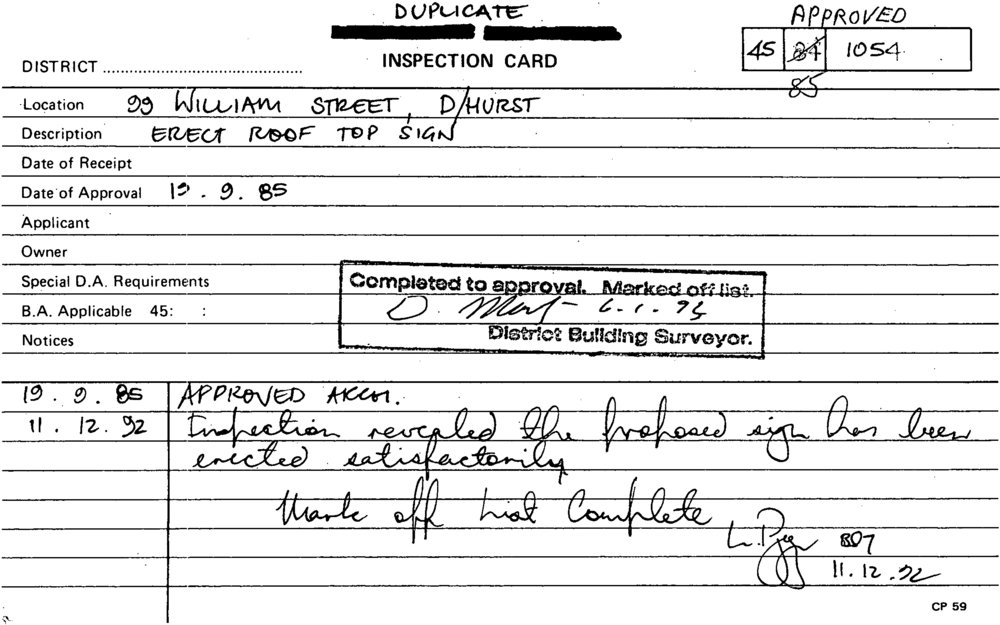 DUPLICATE
APPROVED
45 84 1054
85
INSPECTION CARD
DISTRICT
Location 99 WILLIAM STREET, D/HURST
Description ERECT ROOF TOP SIGN
Date of Receipt
Date of Approval 19.9.85
Applicant
Owner
Special D.A. Requirements
B.A. Applicable 45: :
Notices
Completed to approval. Marked off list.
D.
District Building Surveyor.
19.9.85 APPROVED
11.12.92 Inspection revealed the proposed sign has been
erected satisfactorily
Mark off List Complete
L.
11.12.92
CP 59